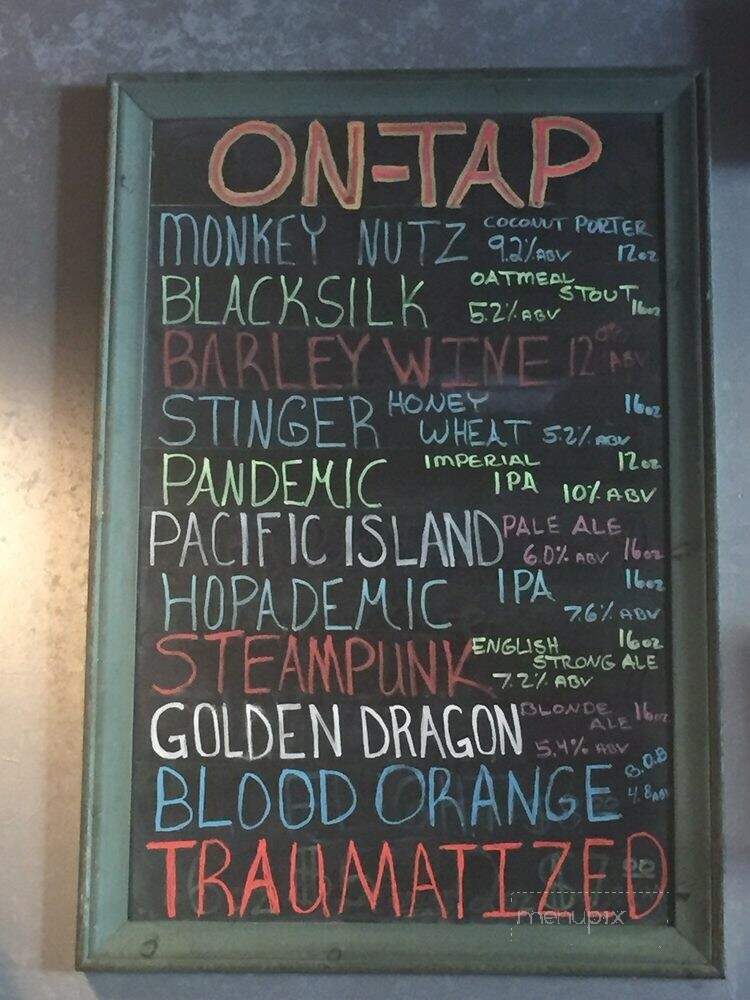 ON-TAP
MONKEY NUTZ COCONUT PORTER 9.2% ABV 12oz
BLACKSILK OATMEAL STOUT 5.2% ABV 16oz
BARLEY WINE 12% ABV
STINGER HONEY WHEAT 5.2% ABV 16oz
PANDEMIC IMPERIAL IPA 10% ABV 12oz
PACIFIC ISLAND PALE ALE 6.0% ABV 16oz
HOPADEMIC IPA 7.6% ABV 16oz
STEAMPUNK ENGLISH STRONG ALE 7.2% ABV 16oz
GOLDEN DRAGON BLONDE ALE 5.4% ABV 16oz
BLOOD ORANGE B.O.B 4.8 ABV
TRAUMATIZED
menupix